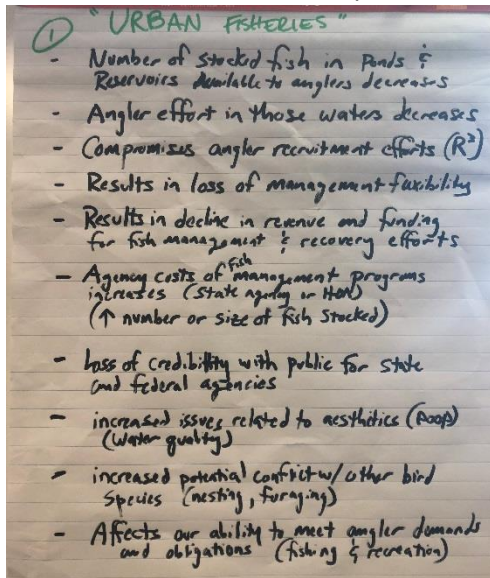 ① "URBAN FISHERIES"
- Number of stocked fish in Ponds &
Reservoirs Available to anglers decreases
- Angler effort in those waters decreases
- Compromises angler recruitment efforts (R³)
- Results in loss of management flexibility
- Results in decline in revenue and funding
for fish management & recovery efforts
- Agency costs of fish management programs
increases (state agency or HOA)
(↑ number or size of fish stocked)
- Loss of credibility with public for state
and federal agencies
- increased issues related to aesthetics (POOP)
(water quality)
- increased potential conflict w/ other bird
species (nesting, foraging)
- Affects our ability to meet angler demands
and obligations (fishing & recreation)